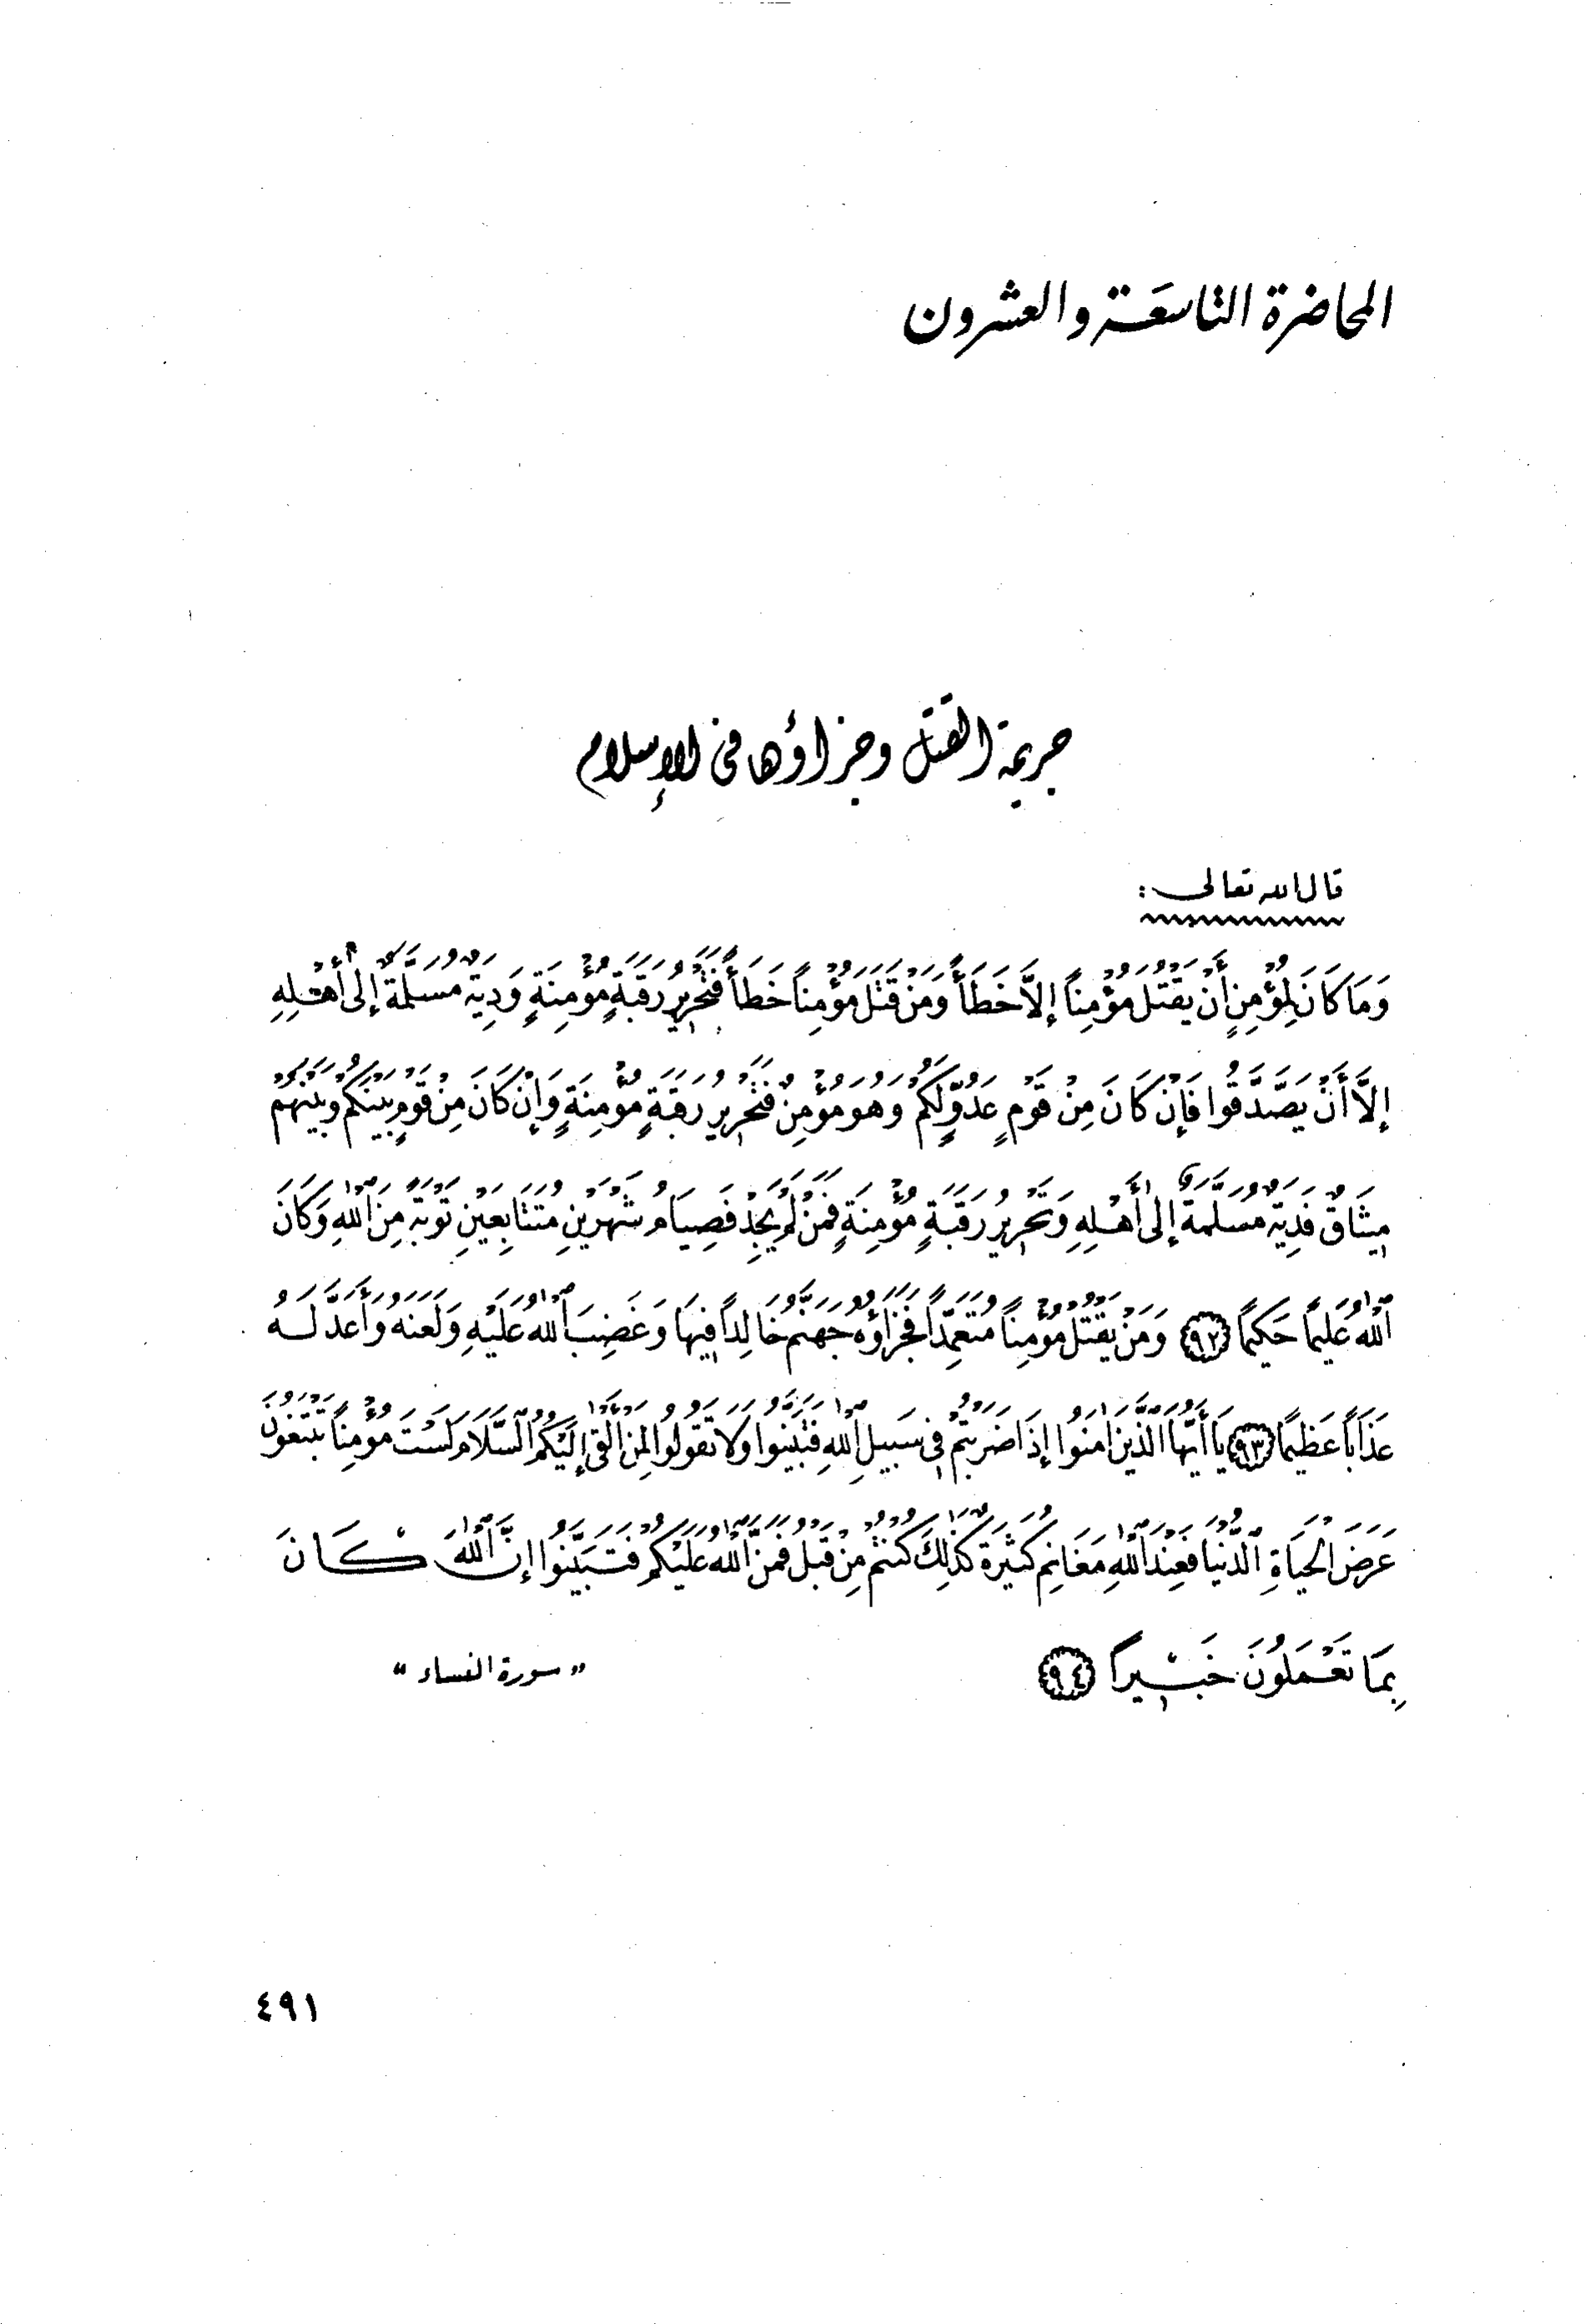 المحاضرة التاسعة والعشرون
جريمة القتل وجزاؤها في الإسلام
قال الله تعالى :
وَمَا كَانَ لِمُؤْمِنٍ أَنْ يَقْتُلَ مُؤْمِناً إِلاَّ خَطَأً وَمَنْ قَتَلَ مُؤْمِناً خَطَأً فَتَحْرِيرُ رَقَبَةٍ مُؤْمِنَةٍ وَدِيَةٌ مُسَلَّمَةٌ إِلَى أَهْلِهِ
إِلاَّ أَنْ يَصَّدَّقُوا فَإِنْ كَانَ مِنْ قَوْمٍ عَدُوٍّ لَكُمْ وَهُوَ مُؤْمِنٌ فَتَحْرِيرُ رَقَبَةٍ مُؤْمِنَةٍ وَإِنْ كَانَ مِنْ قَوْمٍ بَيْنَكُمْ وَبَيْنَهُمْ
مِيثَاقٌ فَدِيَةٌ مُسَلَّمَةٌ إِلَى أَهْلِهِ وَتَحْرِيرُ رَقَبَةٍ مُؤْمِنَةٍ فَمَنْ لَمْ يَجِدْ فَصِيَامُ شَهْرَيْنِ مُتَتَابِعَيْنِ تَوْبَةً مِنَ اللهِ وَكَانَ
اللهُ عَلِيماً حَكِيماً ٩٢ وَمَنْ يَقْتُلْ مُؤْمِناً مُتَعَمِّداً فَجَزَاؤُهُ جَهَنَّمُ خَالِداً فِيهَا وَغَضِبَ اللهُ عَلَيْهِ وَلَعَنَهُ وَأَعَدَّ لَهُ
عَذَاباً عَظِيماً ٩٣ يَا أَيُّهَا الَّذِينَ آمَنُوا إِذَا ضَرَبْتُمْ فِي سَبِيلِ اللهِ فَتَبَيَّنُوا وَلَا تَقُولُوا لِمَنْ أَلْقَى إِلَيْكُمُ السَّلَامَ لَسْتَ مُؤْمِناً تَبْتَغُونَ
عَرَضَ الْحَيَاةِ الدُّنْيَا فَعِنْدَ اللهِ مَغَانِمُ كَثِيرَةٌ كَذَلِكَ كُنْتُمْ مِنْ قَبْلُ فَمَنَّ اللهُ عَلَيْكُمْ فَتَبَيَّنُوا إِنَّ اللهَ كَانَ
بِمَا تَعْمَلُونَ خَبِيراً ٩٤ « سورة النساء »
٤٩١